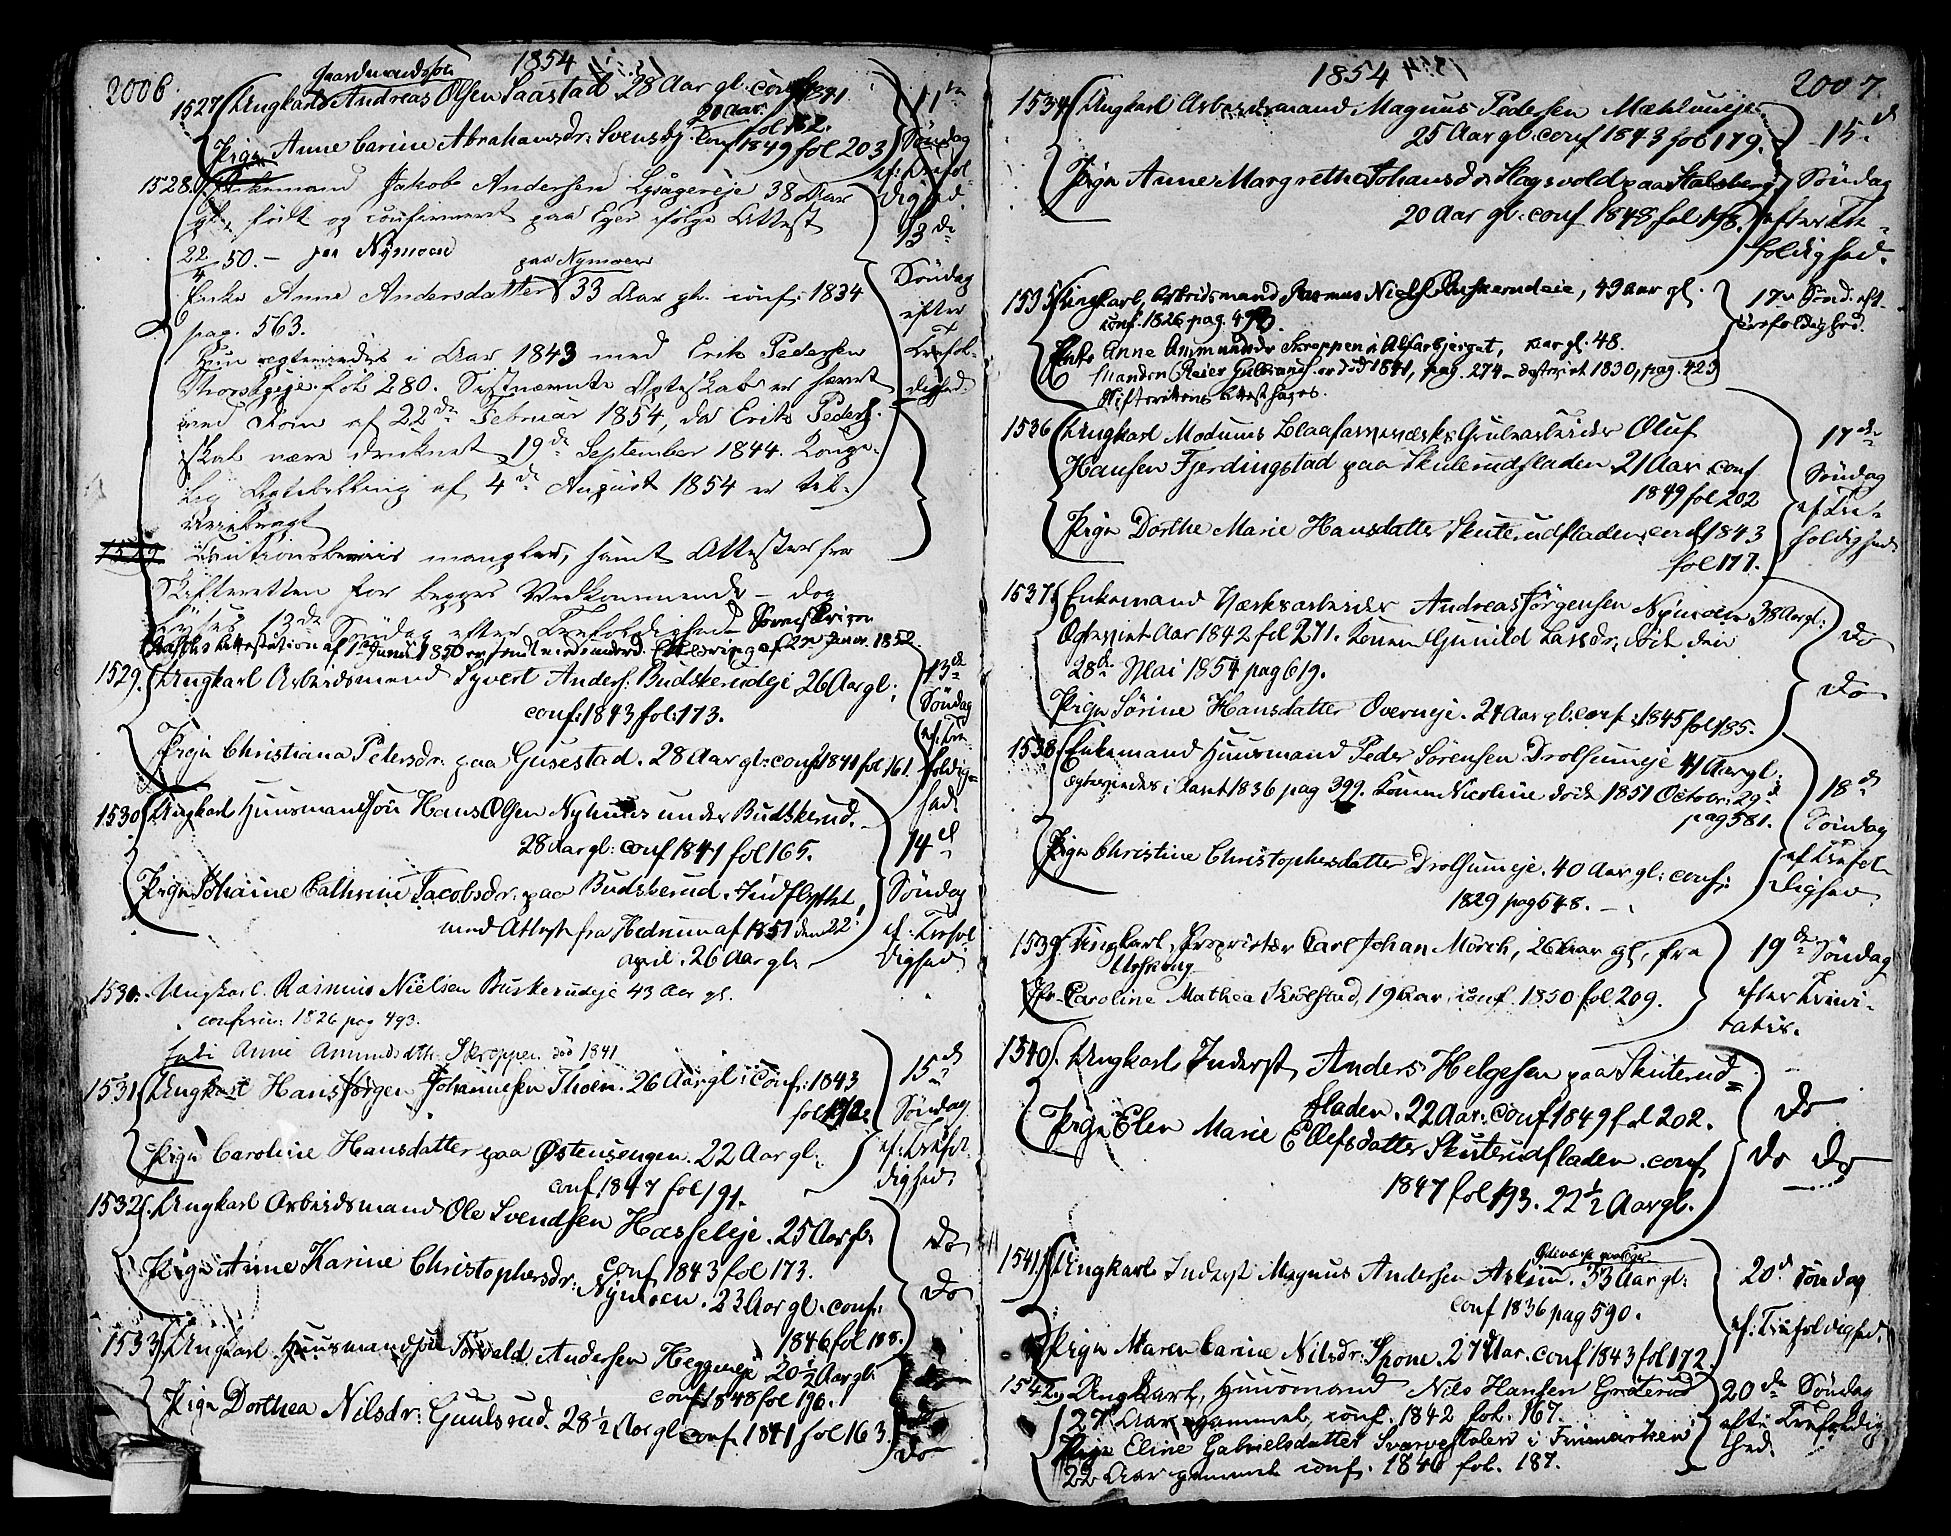 2006.
1854
Gaardmandssøn
1527 Ungkarl Andreas Olsen Saastad 28 Aar gl. conf
20 aar. fol 162.
Pige Anne Carine Abrahamsdr: Svensbj. conf 1849 fol 203
11te Søndag ef: Trefoldighed.
1528. Enkemand Jakob Andersen Lysagereje 38 Aar
gl., født og confirmeret paa Eger ifølge Attest
22/4 50. – paa Nymoen
paa Nymoen
Enke Anne Andersdatter 33 Aar gl. conf: 1834
pag. 563.
Hun egteviedes i Aar 1843 med Erik Pedersen
fol. 280. Sidstnævnte Ægteskab er hævet
ved Dom af 22de Februar 1854, da Erik Peders.
skal være druknet 19de September 1844. Konge-
lig Bevilling af 4de August 1854 er til-
veiebragt
13de Søndag efter Trefoldighed.
1529 Cautionsbeviis mangler, samt Attester fra
Skifteretten for begges Vedkommende – dog
lyses 13de Søndag efter Trefoldighed
1529. Ungkarl Arbeidsmand Syvert Anders: Budskerudeje 26 Aar gl:
conf: 1843 fol: 173.
Pige Christiana Petersdr: paa Gusestad. 28 Aar gl: conf: 1841 fol 161.
13de Søndag ef: Trefoldighed.
1530 Ungkarl Huusmandssøn Hans Olsen Nyhuus under Budskerud.
28 Aar gl: conf 1841 fol 165.
Pige Johanne Cathrine Jacobsdr: paa Budskerud. Indflyttet
med Attest fra Hedrum af 1851 den 22
april. 26 Aar gl.
14de Søndag ef: Trefoldighed
1530. Ungkarl Rasmus Nielsen Buskerudeje 43 Aar gl.
confirm: 1826 pag 493.
Enke Anne Amundsdtr. Skroppen død 1841
1531 Ungkarl Hans Jørgen Johannesen Thoen. 26 Aar gl: conf: 1843
fol 172.
Pige Caroline Hansdatter paa Østensengen. 22 Aar gl:
conf 1847 fol 191.
15de Søndag ef: Trefoldighed
1532 Ungkarl Arbeidsmand Ole Svendsen Hasseleje. 25 Aar gl.
conf 1843 fol 173.
Pige Anne Karine Christophersdr: Nymoen. 23 Aar gl. conf:
1846 fol 188.
Do
Do
1533 Ungkarl Huusmandssøn Torvald Andersen Heggeneje 20½ Aar gl:
conf 1848 fol 196.
Pige Dorthea Nilsdr: Guulsrud. 28½ Aar gl: conf 1841 fol 163.
Do
1854
2007.
1534 Ungkarl Arbeidsmand Magnus Pedersen Mæhlumeje
25 Aar gl: conf 1843 fol 179.
Pige Anne Margrethe Johansdr: Slagsvold paa Stalsberg
20 Aar gl: conf 1848 fol 198.
15de Søndag efter Trefoldighed.
1535 Ungkarl, Arbeidsmand Rasmus Niels. Buskerudeie, 43 aar gl.
conf. 1826 pag. 493.
Enke Anne Ammundsdr Skroppen i Alfarbjerget, aar gl. 48.
Manden Reier Gulbrands. er død 1841, pag. 274 – Egteviet 1830, pag. 423
Skifterettens Attest haves.
17de Sønd. eft. Trefoldighed.
1536 Ungkarl Modums Blaafarveværks Grubearbeider Oluf
Hansen Fjerdingstad paa Skuterudfladen. 21 Aar conf
1849 fol 202
Pige Dorthe Marie Hansdatter Skuterudfladen. conf 1843
fol 177.
17de Søndag ef: Trefoldighed
1537. Enkemand Værksarbeider Andreas Jørgensen Nymoen 38 Aar gl:
Egteviet Aar 1842 fol 271. Konen Gunild Larsdr. døde den
28de Mai 1854 pag 619.
Pige Sørine Hansdatter Overneje. 24 Aar gl: conf: 1845 fol 185.
Do
Do
1538. Enkemand Huusmand Peder Sørensen Drolsumeje 41 Aar gl:
egteviedes i Aaret 1836 pag 399. Konen Nicoline døde 1851 Octobr: 29de
pag 581.
Pige Christine Christophersdatter Drolsumeje. 40 Aar gl: conf:
1829 pag 548.
18de Søndag ef Trefoldighed
1539. Ungkarl, Proprietær Carl Johan Mørch, 26 aar gl, fra
Modum
Jfr. Caroline Mathea Skiølstad, 19 aar, conf. 1850 fol. 209.
19de Søndag efter Trinitatis.
1540. Ungkarl Inderst Anders Helgesen paa Skuterud-
fladen. 22 Aar. conf 1849 fol 202.
Pige Elen Marie Ellefsdatter Skuterudfladen. conf
1847 fol 193. 22½ Aar gl.
Do
Do Do
1541 Ungkarl Inderst Magnus Andersen Askim. 33 Aar gl:
conf 1836 pag 590.
Pige Maren Carine Nilsdr: Spone. 27 Aar. conf 1843 fol 172.
20de Søndag ef: Trefoldighed.
1542. Ungkarl, Huusmand Nils Hansen Grøterud
27 Aar gammel, conf. 1842 fol. 167.
Pige Eline Gabrielsdatter Svarvestolen i Finmarken
22 Aar gammel conf. 1846 fol. 187.
20de Søndag efter Trefoldighed.